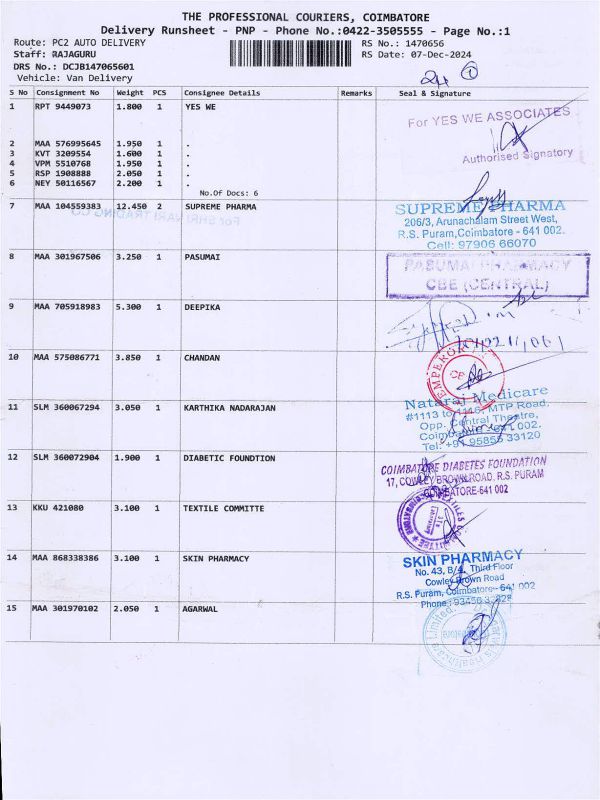 THE PROFESSIONAL COURIERS, COIMBATORE
Delivery Runsheet - PNP - Phone No.:0422-3505555 - Page No.:1
Route: PC2 AUTO DELIVERY
RS No.: 1470656
Staff: RAJAGURU
RS Date: 07-Dec-2024
DRS No.: DCJB147065601
Vehicle: Van Delivery
S No Consignment No Weight PCS Consignee Details Remarks Seal & Signature
1 RPT 9449073 1.800 1 YES WE
For YES WE ASSOCIATES
Authorised Signatory
2 MAA 576995645 1.950 1 .
3 KVT 3209554 1.600 1 .
4 VPM 5510768 1.950 1 .
5 RSP 1908888 2.050 1 .
6 NEY 50116567 2.200 1 .
No.Of Docs: 6
7 MAA 104559383 12.450 2 SUPREME PHARMA
SUPREME PHARMA
206/3, Arunachalam Street West,
R.S. Puram,Coimbatore - 641 002.
Cell: 97906 66070
8 MAA 301967506 3.250 1 PASUMAI
PASUMAI PHARMACY
CBE (CENTRAL)
9 MAA 705918983 5.300 1 DEEPIKA
10 MAA 575086771 3.850 1 CHANDAN
EMPEROR
11 SLM 360067294 3.050 1 KARTHIKA NADARAJAN
Nataraj Medicare
#1113 to 1116, MTP Road,
Opp. Central Theatre,
Tel: +91 95855 33120
12 SLM 360072904 1.900 1 DIABETIC FOUNDTION
COIMBATORE DIABETES FOUNDATION
17, COWLEY BROWN ROAD, R.S. PURAM
COIMBATORE-641 002
13 KKU 421080 3.100 1 TEXTILE COMMITTE
14 MAA 868338386 3.100 1 SKIN PHARMACY
SKIN PHARMACY
No. 43, B/4, Third Floor
Cowley Brown Road
R.S. Puram, Coimbatore - 641 002
15 MAA 301970102 2.050 1 AGARWAL